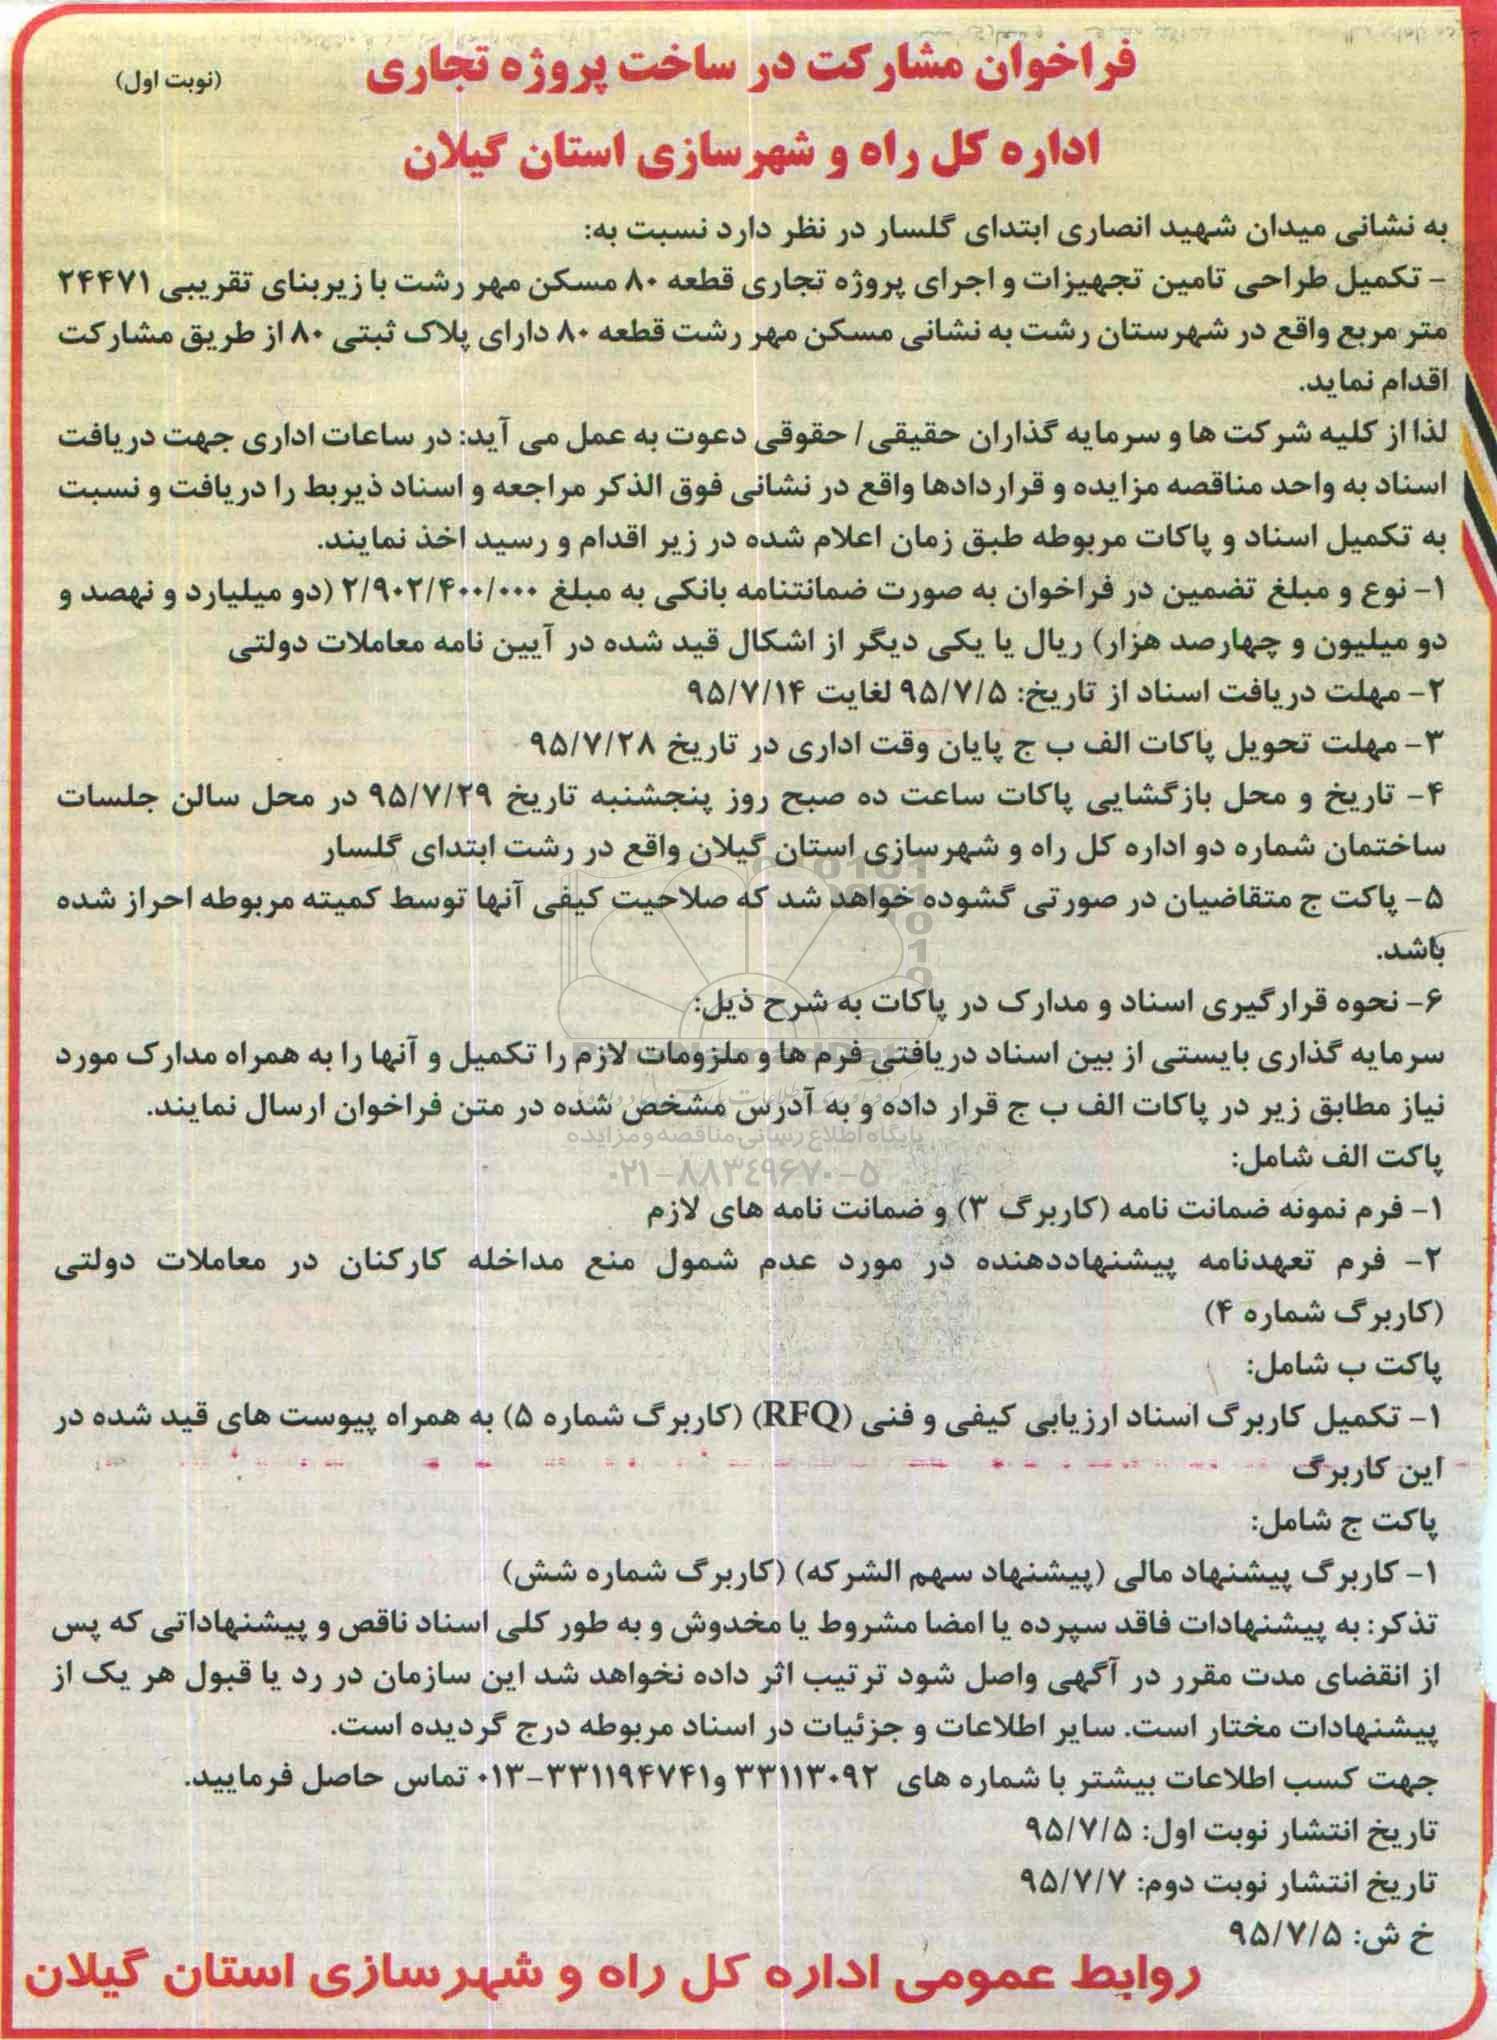 فراخوان مشارکت در ساخت پروژه تجاری
(نوبت اول)
اداره کل راه و شهرسازی استان گیلان
به نشانی میدان شهید انصاری ابتدای گلسار در نظر دارد نسبت به:
- تکمیل طراحی تامین تجهیزات و اجرای پروژه تجاری قطعه ۸۰ مسکن مهر رشت با زیربنای تقریبی ۲۴۴۷۱
متر مربع واقع در شهرستان رشت به نشانی مسکن مهر رشت قطعه ۸۰ دارای پلاک ثبتی ۸۰ از طریق مشارکت
اقدام نماید.
لذا از کلیه شرکت ها و سرمایه گذاران حقیقی/ حقوقی دعوت به عمل می آید: در ساعات اداری جهت دریافت
اسناد به واحد مناقصه مزایده و قراردادها واقع در نشانی فوق الذکر مراجعه و اسناد ذیربط را دریافت و نسبت
به تکمیل اسناد و پاکات مربوطه طبق زمان اعلام شده در زیر اقدام و رسید اخذ نمایند.
۱- نوع و مبلغ تضمین در فراخوان به صورت ضمانتنامه بانکی به مبلغ ۲/۹۰۲/۴۰۰/۰۰۰ (دو میلیارد و نهصد و
دو میلیون و چهارصد هزار) ریال یا یکی دیگر از اشکال قید شده در آیین نامه معاملات دولتی
۲- مهلت دریافت اسناد از تاریخ: ۹۵/۷/۵ لغایت ۹۵/۷/۱۴
۳- مهلت تحویل پاکات الف ب ج پایان وقت اداری در تاریخ ۹۵/۷/۲۸
۴- تاریخ و محل بازگشایی پاکات ساعت ده صبح روز پنجشنبه تاریخ ۹۵/۷/۲۹ در محل سالن جلسات
ساختمان شماره دو اداره کل راه و شهرسازی استان گیلان واقع در رشت ابتدای گلسار
۵- پاکت ج متقاضیان در صورتی گشوده خواهد شد که صلاحیت کیفی آنها توسط کمیته مربوطه احراز شده
باشد.
۶- نحوه قرارگیری اسناد و مدارک در پاکات به شرح ذیل:
سرمایه گذاری بایستی از بین اسناد دریافتی فرم ها و ملزومات لازم را تکمیل و آنها را به همراه مدارک مورد
نیاز مطابق زیر در پاکات الف ب ج قرار داده و به آدرس مشخص شده در متن فراخوان ارسال نمایند.
پایگاه اطلاع رسانی مناقصه و مزایده
پاکت الف شامل:
۰۲۱-۸۸۳۴۹۶۷۰-۵
۱- فرم نمونه ضمانت نامه (کاربرگ ۳) و ضمانت نامه های لازم
۲- فرم تعهدنامه پیشنهاددهنده در مورد عدم شمول منع مداخله کارکنان در معاملات دولتی
(کاربرگ شماره ۴)
پاکت ب شامل:
۱- تکمیل کاربرگ اسناد ارزیابی کیفی و فنی (RFQ) (کاربرگ شماره ۵) به همراه پیوست های قید شده در
این کاربرگ
پاکت ج شامل:
۱- کاربرگ پیشنهاد مالی (پیشنهاد سهم الشرکه) (کاربرگ شماره شش)
تذکر: به پیشنهادات فاقد سپرده یا امضا مشروط یا مخدوش و به طور کلی اسناد ناقص و پیشنهاداتی که پس
از انقضای مدت مقرر در آگهی واصل شود ترتیب اثر داده نخواهد شد این سازمان در رد یا قبول هر یک از
پیشنهادات مختار است. سایر اطلاعات و جزئیات در اسناد مربوطه درج گردیده است.
جهت کسب اطلاعات بیشتر با شماره های ۳۳۱۱۳۰۹۲ و۰۱۳-۳۳۱۱۹۴۷۴۱ تماس حاصل فرمایید.
تاریخ انتشار نوبت اول: ۹۵/۷/۵
تاریخ انتشار نوبت دوم: ۹۵/۷/۷
خ ش: ۹۵/۷/۵
روابط عمومی اداره کل راه و شهرسازی استان گیلان